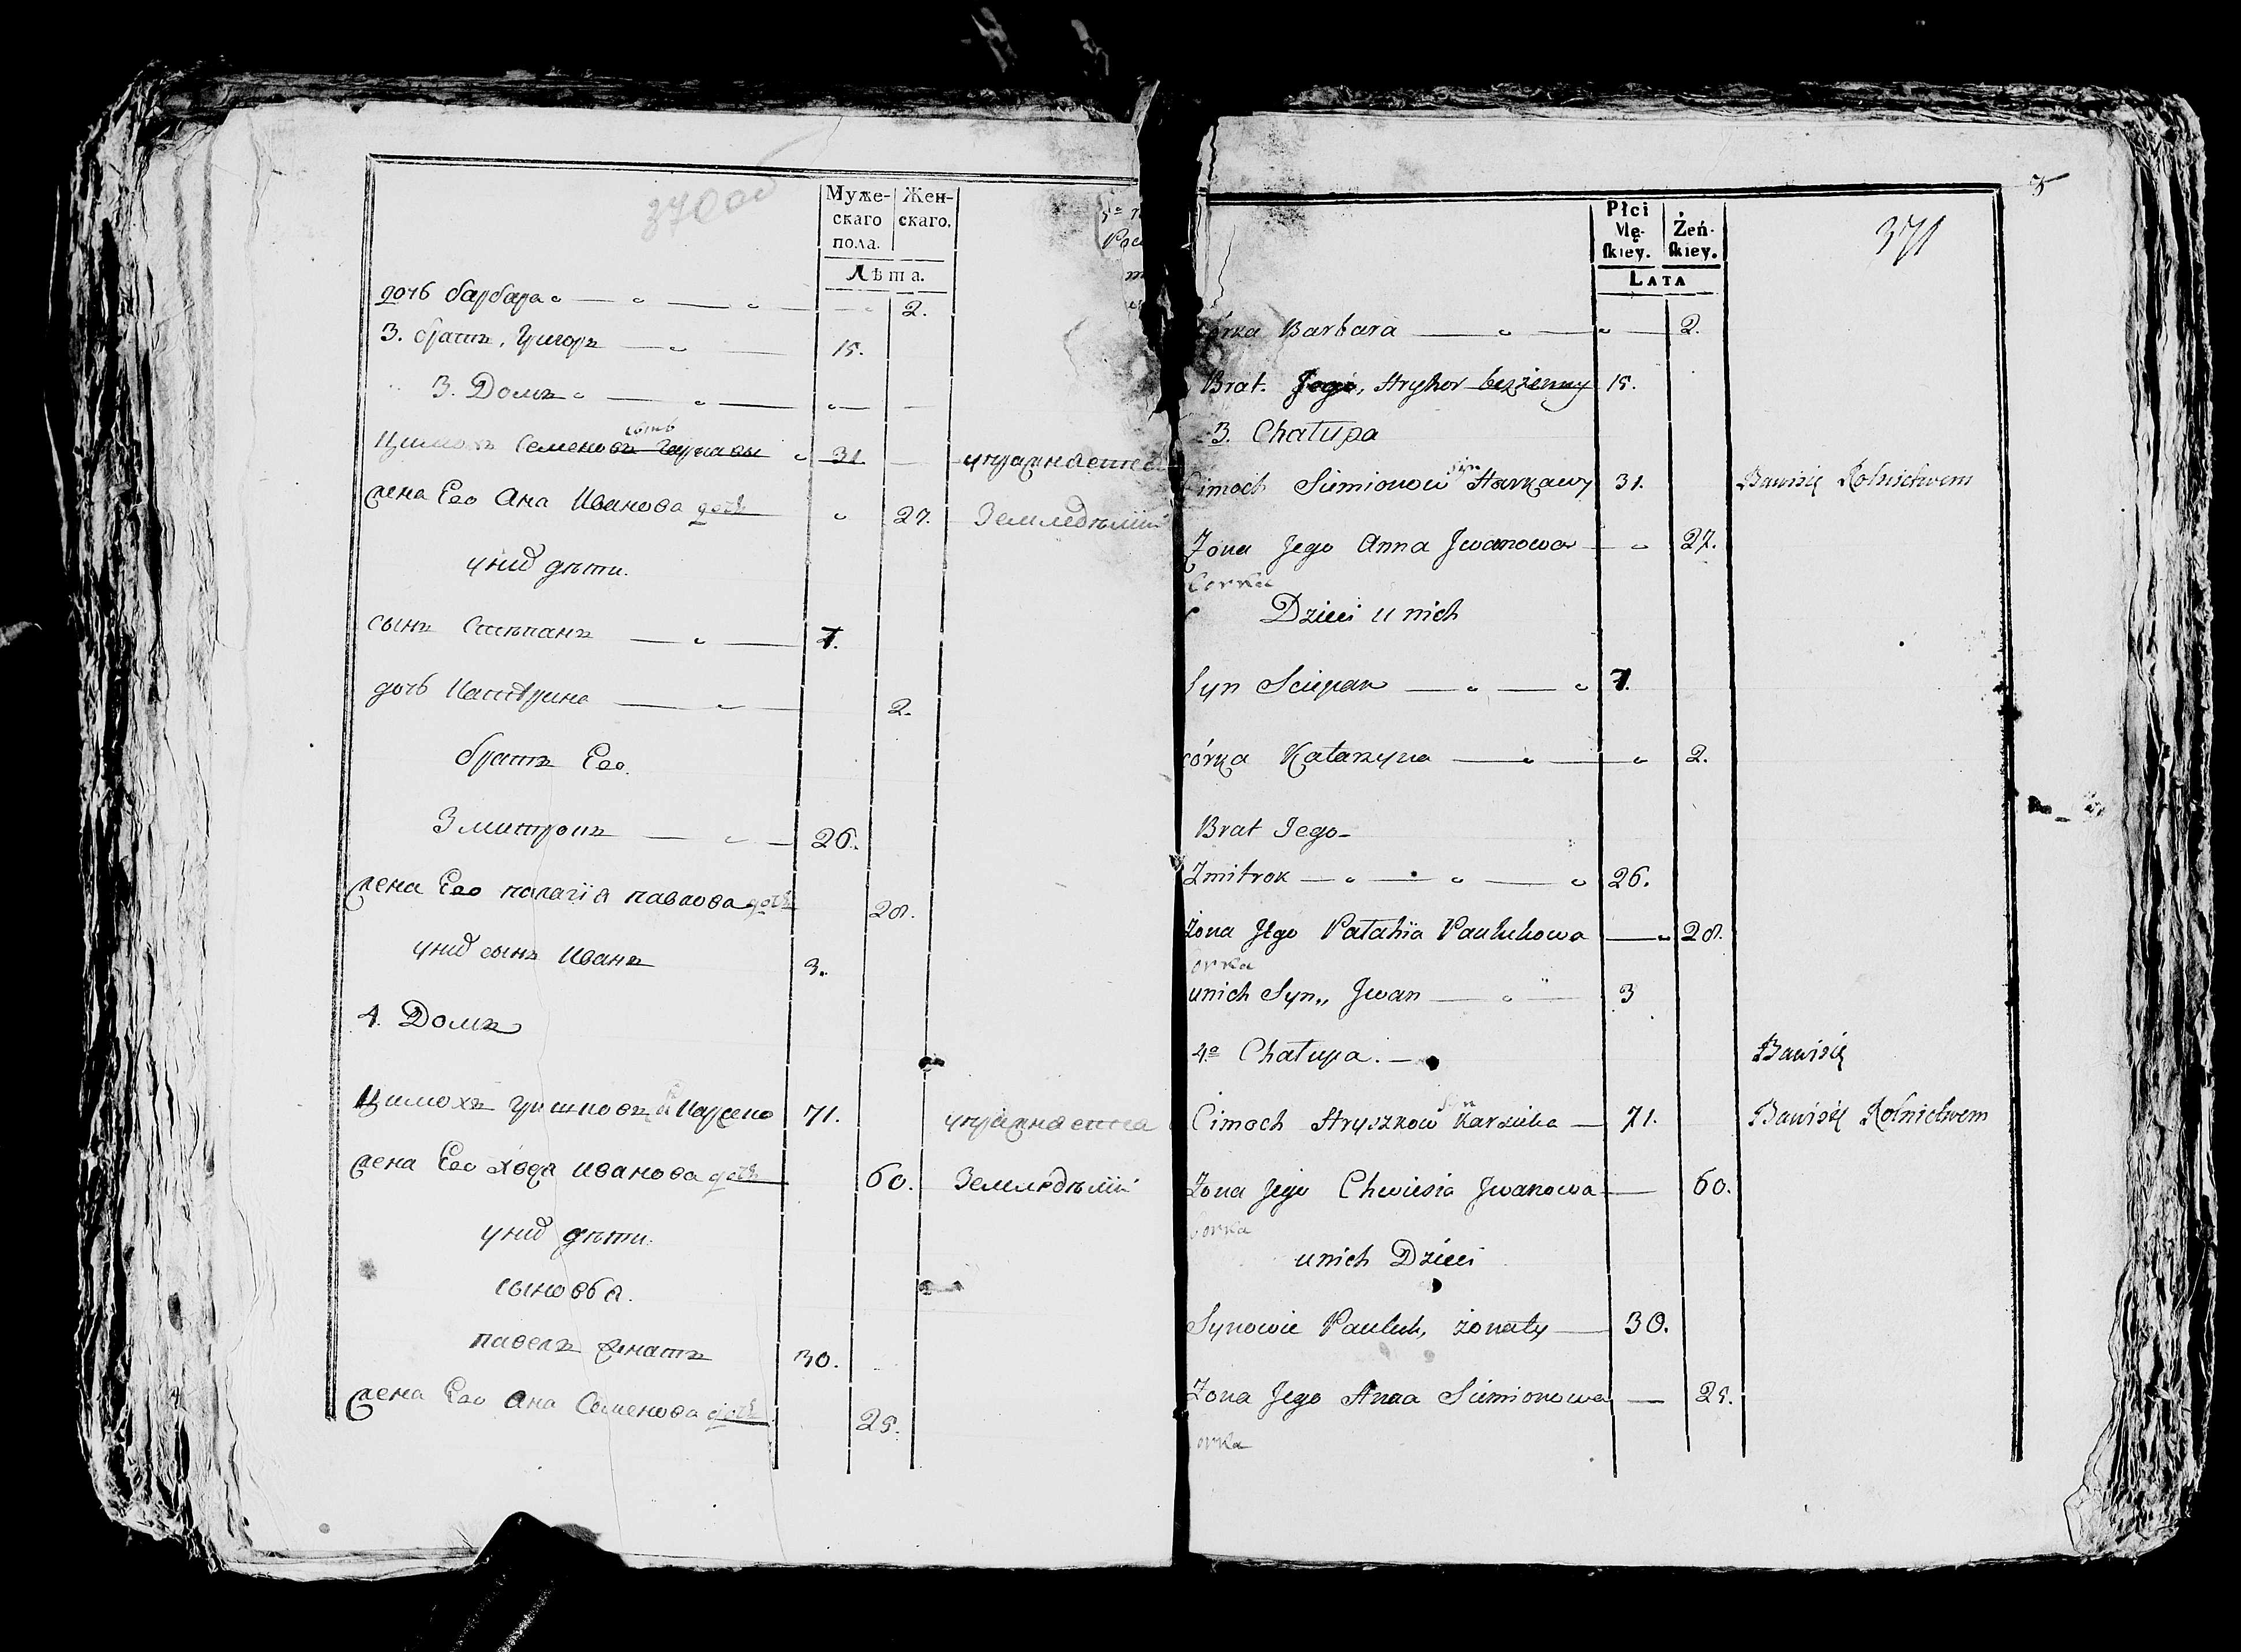 370 об
Муже-
скаго
пола.
Жен-
скаго.
Лѣта.
дочь барбара 2.
3. братъ, Григоръ 15.
3. Домъ
сынъ
Цимохъ Семеновъ Гаркавы 31. упражняется
жена Его Ана Иванова дочь 27. Земледѣлій
у нид дѣти.
сынъ Стѣпанъ 7.
дочь Катѣрина 2.
братъ Его.
Змитрокъ 26.
жена Его палагія павлова дочь 28.
у нид сынъ Иванъ 3.
4. Домъ
Цимохъ Гришковъ Карсеко 71. упражняется
жена Его хведя иванова дочь 60. Земледѣлій
у нид дѣти.
сыновья.
павелъ женатъ 30.
жена Его Ана Семенова дочь 25.
5
371
Płci
Mę-
skiey.
Żeń-
skiey.
LATA
córka Barbara 2.
Brat Jego, Hryhor bezżenny 15.
3. Chałupa
syn
Cimoch Siemionow Harkawy 31. Bawi się Rolnictwem
Żona Jego Anna Jwanowa 27.
Corka
Dzieci u nich
Syn Sciepan 7.
córka Katarzyna 2.
Brat Jego
Zmitrok 26.
żona Jego Pałahia Pauluhowa 28.
orka
u nich Syn Jwan 3
4a Chałupa. Bawi się
syn
Cimoch Hryszkow Karsieko 71. Bawi się Rolnictwem
Żona Jego Chwiesia Jwanowa 60.
Corka
u nich Dzieci
Synowie Pauluk, żonaty 30.
Żona Jego Anna Siemionowa 25.
orka